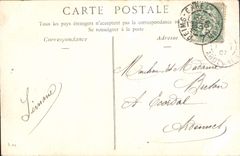 CARTE POSTALE
Tous les pays étrangers n'acceptent pas la correspondance
Se renseigner à la poste
Correspondance
Adresse
Monsieur et Madame
Breton
A Ecordal
Ardennes